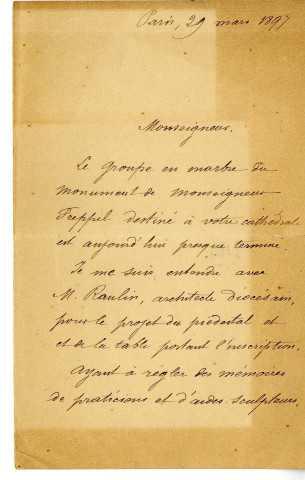 Paris, 29 mars 1897
Monseigneur.
Le groupe en marbre du
monument de Monseigneur
Freppel destiné à votre cathédrale
est aujourd'hui presque terminé.
Je me suis entendu avec
M. Raulin, architecte diocésain,
pour le projet du piédestal et
et de la table portant l'inscription.
Ayant à régler des mémoires
de praticiens et d'aides sculpteurs,